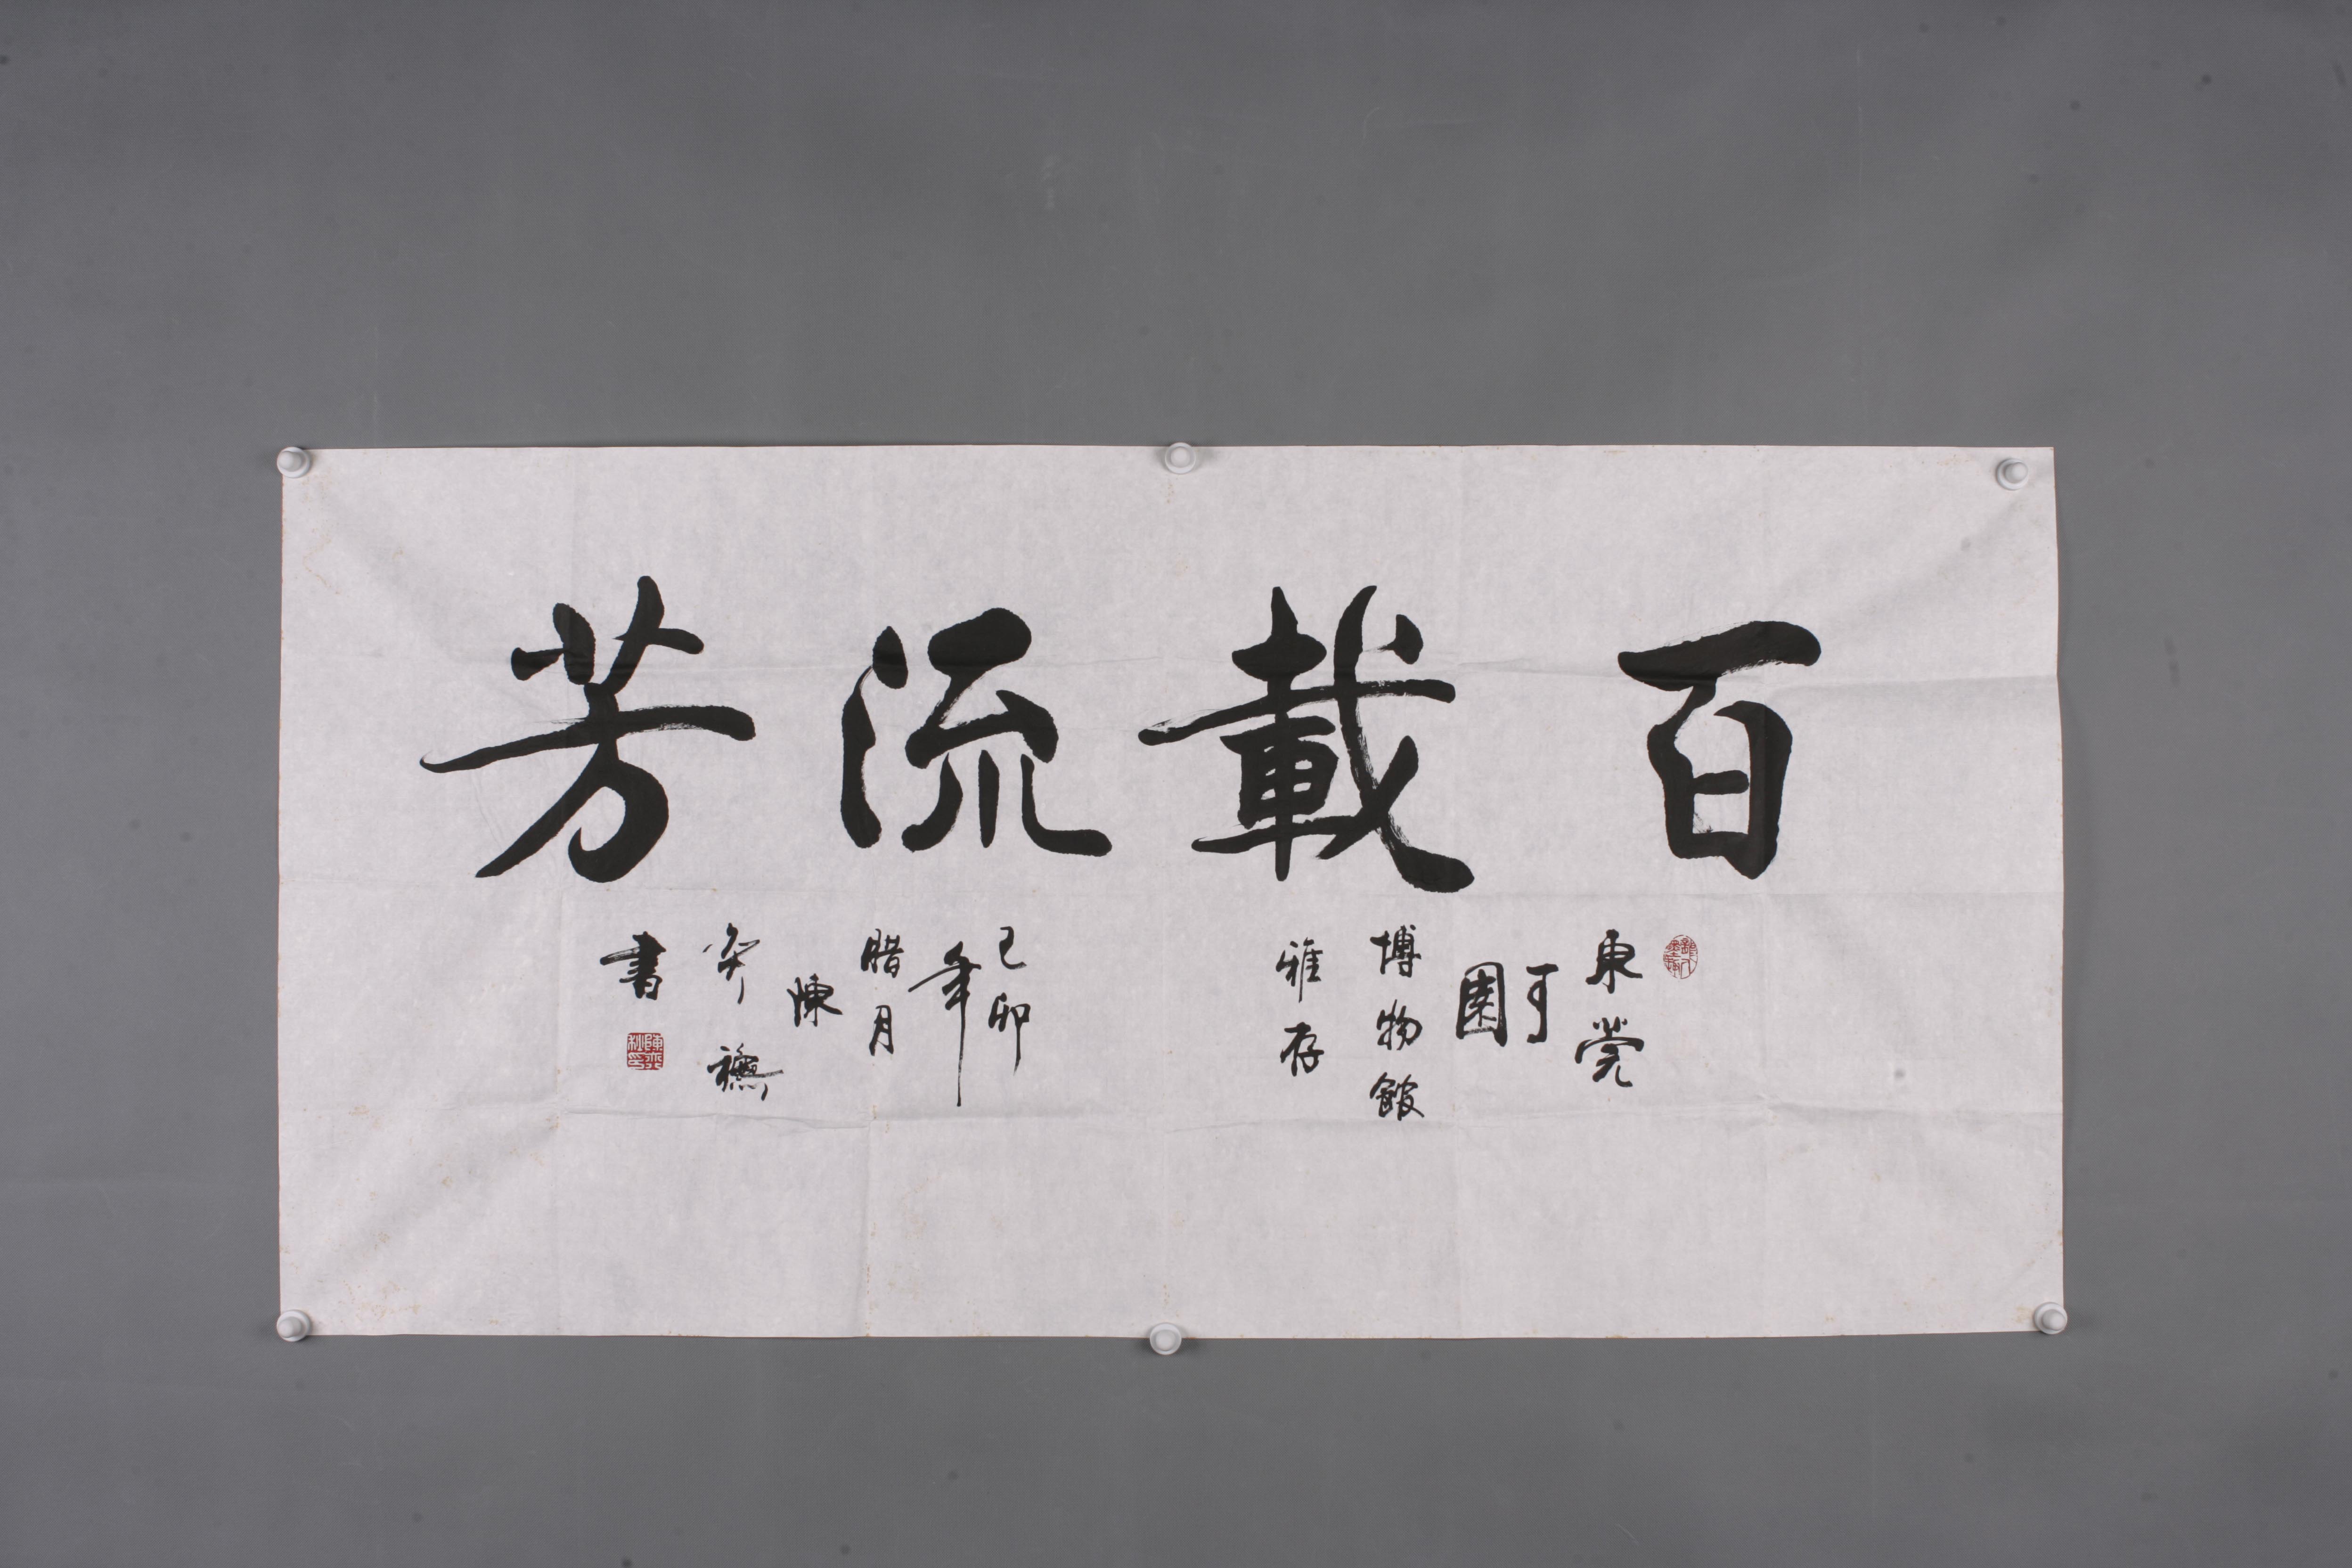 百載流芳
東莞
可園
博物館
雅存
己卯
年
腊月
陳
奕
書
陳奕
秋印